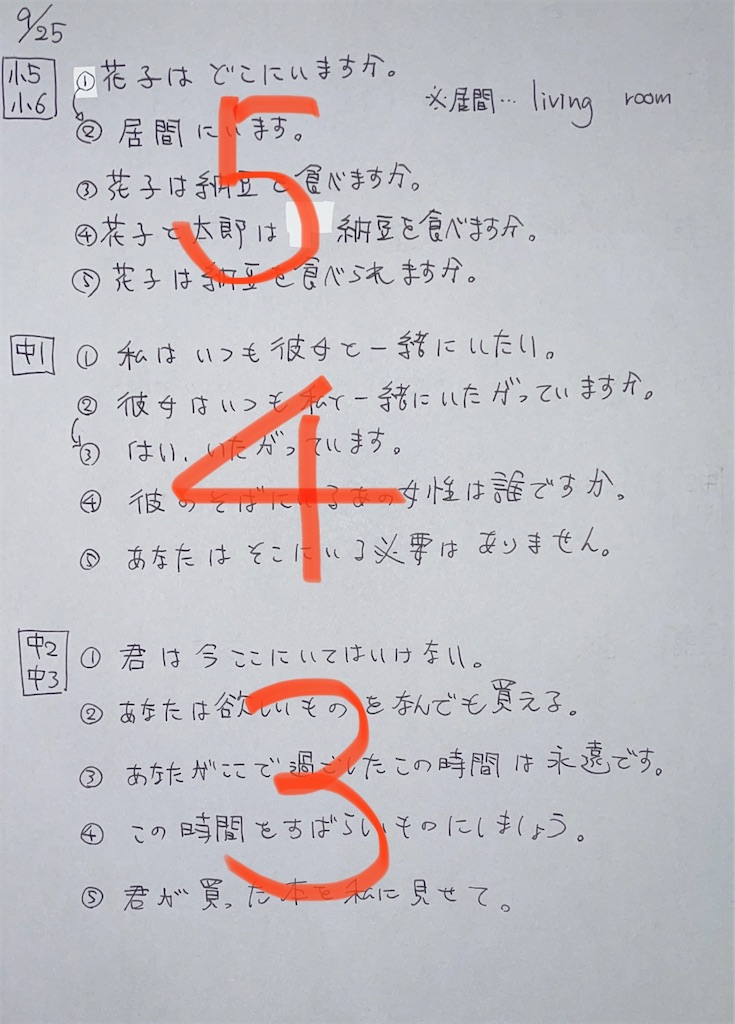 9/25
小5
小6
①花子は どこにいますか。
※居間… living room
②居間にいます。
③花子は納豆を食べますか。
④花子と太郎は 納豆を食べますか。
⑤花子は納豆を食べられますか。
5
中1
①私はいつも彼女と一緒にいたい。
②彼女はいつも私と一緒にいたがっていますか。
③はい、いたがっています。
④彼のそばにいるあの女性は誰ですか。
⑤あなたはそこにいる必要はありません。
4
中2
中3
①君は今ここにいてはいけない。
②あなたは欲しいものをなんでも買える。
③あなたがここで過ごしたこの時間は永遠です。
④この時間をすばらいものにしましょう。
⑤君が買った本を私に見せて。
3